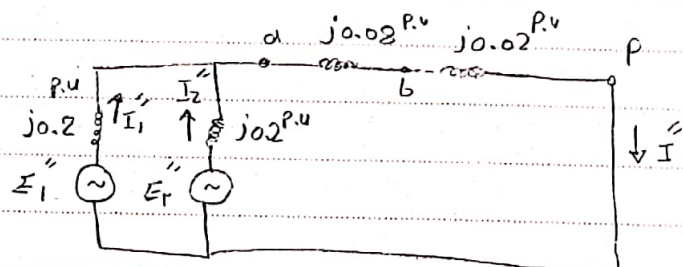 a j0.08 P.u j0.02 P.u P
b
P.u
j0.2 I₁″ I₂″ j0.2 P.u
↓ I″
E₁″ E۲″